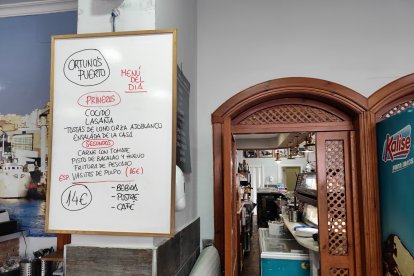 ORTUÑO'S
PUERTO
MENÚ
DEL
DIA
PRIMEROS
COCIDO
LASAÑA
TOSTAS DE LOMO ORZA AJOBLANCO
ENSALADA DE LA CASA
SEGUNDOS
CARNE CON TOMATE
PISTO DE BACALAO Y HUEVO
FRITURA DE PESCADO
ESP. VASITOS DE PULPO (16€)
14€
- BEBIDA
- POSTRE
- CAFE
Kalise